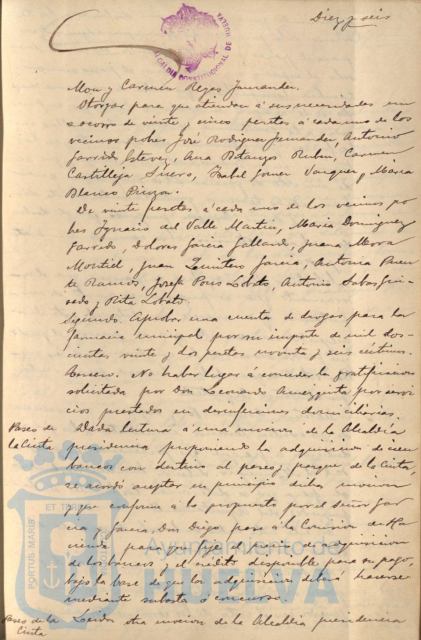 Diez y seis
ALCALDIA CONSTITUCIONAL DE HUELVA
Mon y Carmen Reyes Fernandez.
Otorgar para que atiendan á sus necesidades un
socorro de veinte y cinco pesetas á cada uno de los
vecinos pobres José Rodriguez Fernandez, Antonio
Garrido Estevez, Ana Betanzos Rubin, Carmen
Castilleja Suero, Isabel Gomez Vazquez y Maria
Blanco Pinzon.
De veinte pesetas á cada uno de los vecinos po-
bres Ignacio del Valle Martin, Maria Dominguez
Garrido, Dolores Garcia Gallardo, Juana Mora
Montiel, Juan Quintero Garcia, Antonia Puen-
te Ramos, Josefa Pons Lobato, Antonio Sabas
y Rita Lobato.
Segundo. Aprobar una cuenta de drogas para la
farmacia municipal por su importe de mil dos-
cientas veinte y dos pesetas noventa y seis céntimos.
Tercero. No haber lugar á conceder la gratificacion
solicitada por Don Leonardo por servi-
cios prestados en desinfecciones domiciliarias.
Paseo de
la Cinta
Dada lectura á una mocion de la Alcaldia
presidencia proponiendo la adquisicion de
bancos con destino al paseo y parque de la Cinta,
se acordó aceptar en principio dicha mocion
y que conforme á lo propuesto por el señor Gar-
cia y Garcia Don Diego pase á la Comision de Ha-
cienda para que fije el para adquisicion
de los bancos y el crédito disponible para su pago,
bajo la base de que la adquisicion deberá hacerse
mediante subasta ó concurso.
Paseo de la
Cinta
Leida otra mocion de la Alcaldia presidencia
PORTUS MARIS ET TER
Ayuntamiento de
HUELVA